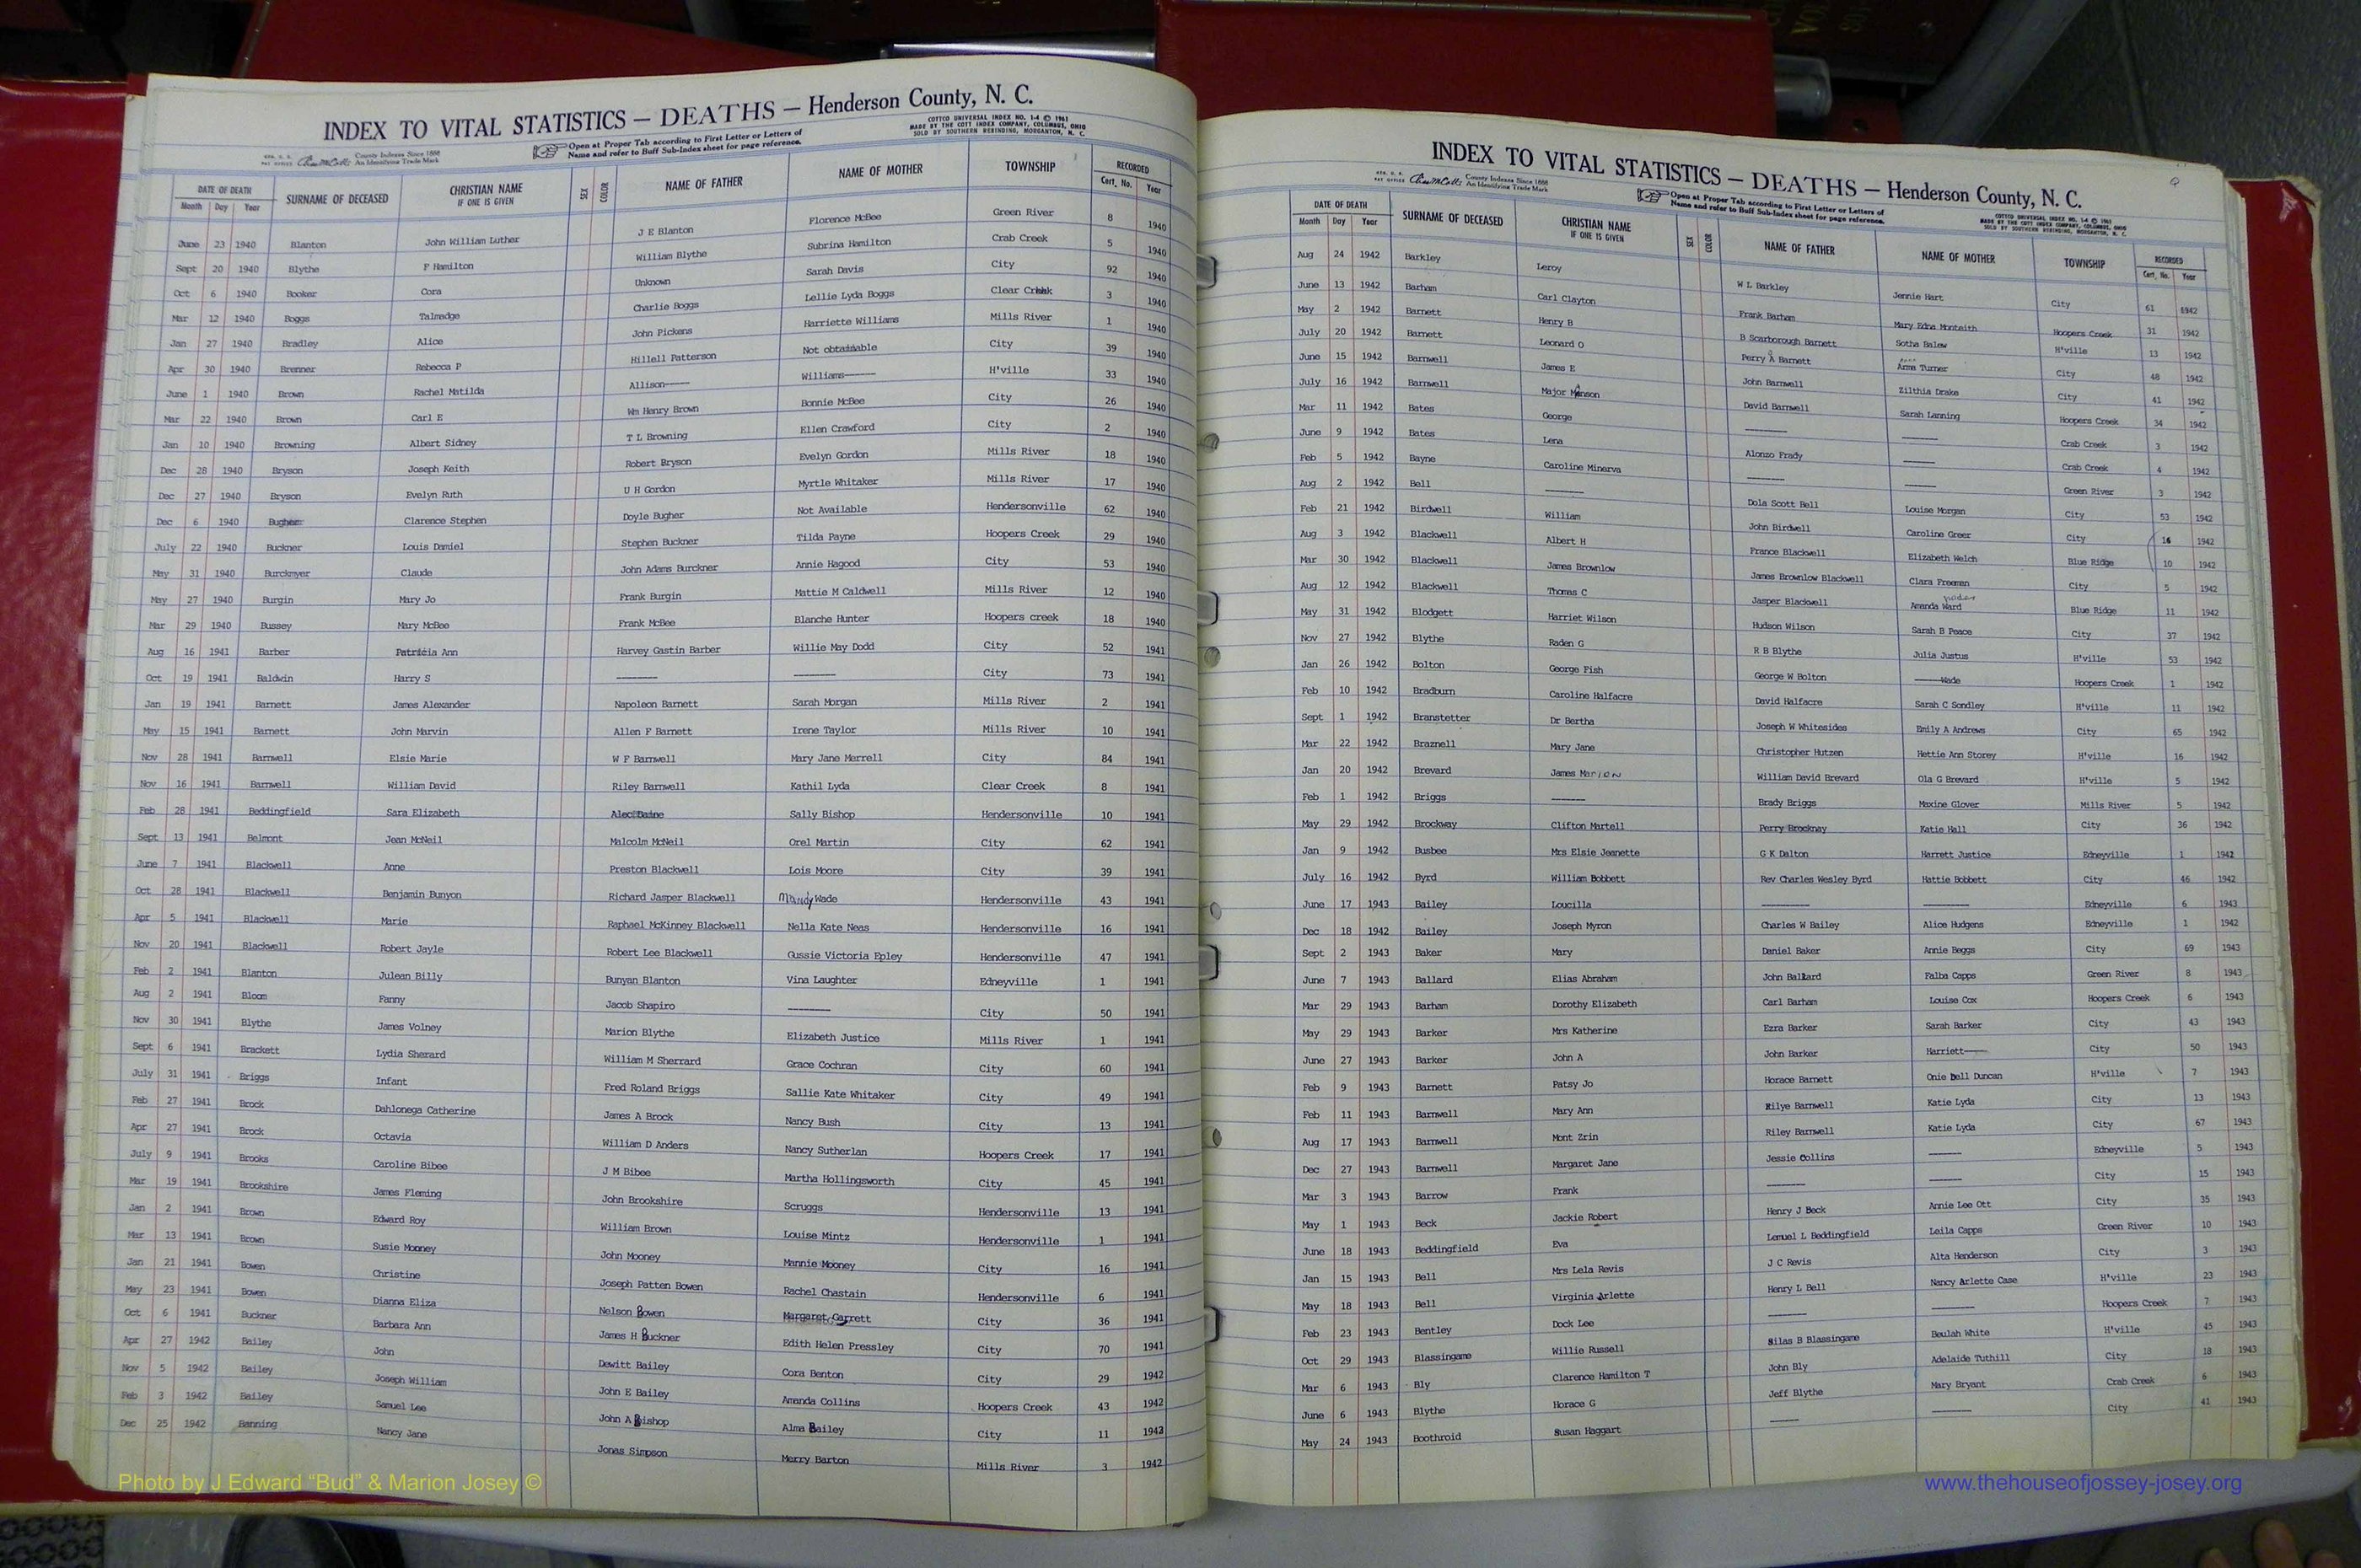 INDEX TO VITAL STATISTICS — DEATHS — Henderson County, N. C.
COTTCO UNIVERSAL INDEX NO. 1-4 © 1961
MADE BY THE COTT INDEX COMPANY, COLUMBUS, OHIO
SOLD BY SOUTHERN REBINDING, MORGANTON, N. C.
County Indexes Since 1888
An Identifying Trade Mark
Open at Proper Tab according to First Letter or Letters of
Name and refer to Buff Sub-Index sheet for page reference.
DATE OF DEATH SURNAME OF DECEASED CHRISTIAN NAME IF ONE IS GIVEN SEX COLOR NAME OF FATHER NAME OF MOTHER TOWNSHIP RECORDED
Month Day Year Cert. No. Year
June 23 1940 Blanton John William Luther J E Blanton Florence McBee Green River 8 1940
Sept 20 1940 Blythe F Hamilton William Blythe Subrina Hamilton Crab Creek 5 1940
Oct 6 1940 Booker Cora Unknown Sarah Davis City 92 1940
Mar 12 1940 Boggs Talmadge Charlie Boggs Lellie Lyda Boggs Clear Creek 3 1940
Jan 27 1940 Bradley Alice John Pickens Harriette Williams Mills River 1 1940
Apr 30 1940 Brenner Rebecca P Hillell Patterson Not obtainable City 39 1940
June 1 1940 Brown Rachel Matilda Allison----- Williams------ H'ville 33 1940
Mar 22 1940 Brown Carl E Wm Henry Brown Bonnie McBee City 26 1940
Jan 10 1940 Browning Albert Sidney T L Browning Ellen Crawford City 2 1940
Dec 28 1940 Bryson Joseph Keith Robert Bryson Evelyn Gordon Mills River 18 1940
Dec 27 1940 Bryson Evelyn Ruth U H Gordon Myrtle Whitaker Mills River 17 1940
Dec 6 1940 Bugher Clarence Stephen Doyle Bugher Not Available Hendersonville 62 1940
July 22 1940 Buckner Louis Daniel Stephen Buckner Tilda Payne Hoopers Creek 29 1940
May 31 1940 Burckmyer Claude John Adams Burckner Annie Hagood City 53 1940
May 27 1940 Burgin Mary Jo Frank Burgin Mattie M Caldwell Mills River 12 1940
Mar 29 1940 Bussey Mary McBee Frank McBee Blanche Hunter Hoopers creek 18 1940
Aug 16 1941 Barber Patricia Ann Harvey Gastin Barber Willie May Dodd City 52 1941
Oct 19 1941 Baldwin Harry S -------- -------- City 73 1941
Jan 19 1941 Barnett James Alexander Napoleon Barnett Sarah Morgan Mills River 2 1941
May 15 1941 Barnett John Marvin Allen F Barnett Irene Taylor Mills River 10 1941
Nov 28 1941 Barnwell Elsie Marie W F Barnwell Mary Jane Merrell City 84 1941
Nov 16 1941 Barnwell William David Riley Barnwell Kathil Lyda Clear Creek 8 1941
Feb 28 1941 Beddingfield Sara Elizabeth Alec Sally Bishop Hendersonville 10 1941
Sept 13 1941 Belmont Jean McNeil Malcolm McNeil Orel Martin City 62 1941
June 7 1941 Blackwell Anne Preston Blackwell Lois Moore City 39 1941
Oct 28 1941 Blackwell Benjamin Bunyon Richard Jasper Blackwell Mandy Wade Hendersonville 43 1941
Apr 5 1941 Blackwell Marie Raphael McKinney Blackwell Nella Kate Neas Hendersonville 16 1941
Nov 20 1941 Blackwell Robert Jayle Robert Lee Blackwell Gussie Victoria Epley Hendersonville 47 1941
Feb 2 1941 Blanton Julean Billy Bunyan Blanton Vina Laughter Edneyville 1 1941
Aug 2 1941 Bloom Fanny Jacob Shapiro -------- City 50 1941
Nov 30 1941 Blythe James Volney Marion Blythe Elizabeth Justice Mills River 1 1941
Sept 6 1941 Brackett Lydia Sherard William M Sherrard Grace Cochran City 60 1941
July 31 1941 Briggs Infant Fred Roland Briggs Sallie Kate Whitaker City 49 1941
Feb 27 1941 Brock Dahlonega Catherine James A Brock Nancy Bush City 13 1941
Apr 27 1941 Brock Octavia William D Anders Nancy Sutherlan Hoopers Creek 17 1941
July 9 1941 Brooks Caroline Bibee J M Bibee Martha Hollingsworth City 45 1941
Mar 19 1941 Brookshire James Fleming John Brookshire Scruggs Hendersonville 13 1941
Jan 2 1941 Brown Edward Roy William Brown Louise Mintz Hendersonville 1 1941
Mar 13 1941 Brown Susie Mooney John Mooney Mannie Mooney City 16 1941
Jan 21 1941 Bowen Christine Joseph Patten Bowen Rachel Chastain Hendersonville 6 1941
May 23 1941 Bowen Dianna Eliza Nelson Bowen Margaret Garrett City 36 1941
Oct 6 1941 Buckner Barbara Ann James H Buckner Edith Helen Pressley City 70 1941
Apr 27 1942 Bailey John Dewitt Bailey Cora Benton City 29 1942
Nov 5 1942 Bailey Joseph William John E Bailey Amanda Collins Hoopers Creek 43 1942
Feb 3 1942 Bailey Samuel Lee John A Bishop Alma Bailey City 11 1942
Dec 25 1942 Banning Nancy Jane Jonas Simpson Merry Barton Mills River 3 1942
INDEX TO VITAL STATISTICS — DEATHS — Henderson County, N. C.
County Indexes Since 1888
An Identifying Trade Mark
Open at Proper Tab according to First Letter or Letters of
Name and refer to Buff Sub-Index sheet for page reference.
COTTCO UNIVERSAL INDEX NO. 1-4 © 1961
MADE BY THE COTT INDEX COMPANY, COLUMBUS, OHIO
SOLD BY SOUTHERN REBINDING, MORGANTON, N. C.
DATE OF DEATH SURNAME OF DECEASED CHRISTIAN NAME IF ONE IS GIVEN SEX COLOR NAME OF FATHER NAME OF MOTHER TOWNSHIP RECORDED
Month Day Year Cert. No. Year
Aug 24 1942 Barkley Leroy W L Barkley Jennie Hart City 61 1942
June 13 1942 Barham Carl Clayton Frank Barham Mary Edna Monteith Hoopers Creek 31 1942
May 2 1942 Barnett Henry B B Scarborough Barnett Sotha Balew H'ville 13 1942
July 20 1942 Barnett Leonard O Perry A Barnett Arma Turner City 48 1942
June 15 1942 Barnwell James E John Barnwell Zilthia Drake City 41 1942
July 16 1942 Barnwell Major Manson David Barnwell Sarah Lanning Hoopers Creek 34 1942
Mar 11 1942 Bates George -------- ------- Crab Creek 3 1942
June 9 1942 Bates Lena Alonzo Frady ------ Crab Creek 4 1942
Feb 5 1942 Bayne Caroline Minerva ------- ------ Green River 3 1942
Aug 2 1942 Bell ------- Dola Scott Bell Louise Morgan City 53 1942
Feb 21 1942 Birdwell William John Birdwell Caroline Greer City 16 1942
Aug 3 1942 Blackwell Albert H France Blackwell Elizabeth Welch Blue Ridge 10 1942
Mar 30 1942 Blackwell James Brownlow James Brownlow Blackwell Clara Freeman City 5 1942
Aug 12 1942 Blackwell Thomas C Jasper Blackwell Amanda Ward Blue Ridge 11 1942
May 31 1942 Blodgett Harriet Wilson Hudson Wilson Sarah B Peace City 37 1942
Nov 27 1942 Blythe Raden G R B Blythe Julia Justus H'ville 53 1942
Jan 26 1942 Bolton George Fish George W Bolton -----Wade Hoopers Creek 1 1942
Feb 10 1942 Bradburn Caroline Halfacre David Halfacre Sarah C Sondley H'ville 11 1942
Sept 1 1942 Branstetter Dr Bertha Joseph W Whitesides Emily A Andrews City 65 1942
Mar 22 1942 Braznell Mary Jane Christopher Hutzen Hettie Ann Storey H'ville 16 1942
Jan 20 1942 Brevard James Marion William David Brevard Ola G Brevard H'ville 5 1942
Feb 1 1942 Briggs ------- Brady Briggs Maxine Glover Mills River 5 1942
May 29 1942 Brockway Clifton Martell Perry Brocknay Katie Hall City 36 1942
Jan 9 1942 Busbee Mrs Elsie Jeanette G K Dalton Harrett Justice Edneyville 1 1942
July 16 1942 Byrd William Bobbett Rev Charles Wesley Byrd Hattie Bobbett City 46 1942
June 17 1943 Bailey Loucilla --------- --------- Edneyville 6 1943
Dec 18 1942 Bailey Joseph Myron Charles W Bailey Alice Hudgens Edneyville 1 1942
Sept 2 1943 Baker Mary Daniel Baker Annie Beggs City 69 1943
June 7 1943 Ballard Elias Abraham John Ballard Falba Capps Green River 8 1943
Mar 29 1943 Barham Dorothy Elizabeth Carl Barham Louise Cox Hoopers Creek 6 1943
May 29 1943 Barker Mrs Katherine Ezra Barker Sarah Barker City 43 1943
June 27 1943 Barker John A John Barker Harriett---- City 50 1943
Feb 9 1943 Barnett Patsy Jo Horace Barnett Onie Bell Duncan H'ville 7 1943
Feb 11 1943 Barnwell Mary Ann Rilye Barnwell Katie Lyda City 13 1943
Aug 17 1943 Barnwell Mont Zrin Riley Barnwell Katie Lyda City 67 1943
Dec 27 1943 Barnwell Margaret Jane Jessie Collins ------ Edneyville 5 1943
Mar 3 1943 Barrow Frank ------- ------ City 15 1943
May 1 1943 Beck Jackie Robert Henry J Beck Annie Lee Ott City 35 1943
June 18 1943 Beddingfield Eva Lemuel L Beddingfield Leila Capps Green River 10 1943
Jan 15 1943 Bell Mrs Lela Revis J C Revis Alta Henderson City 3 1943
May 18 1943 Bell Virginia Arlette Henry L Bell Nancy Arlette Case H'ville 23 1943
Feb 23 1943 Bentley Dock Lee ------- -------- Hoopers Creek 7 1943
Oct 29 1943 Blassingame Willie Russell Silas B Blassingame Beulah White H'ville 45 1943
Mar 6 1943 Bly Clarence Hamilton T John Bly Adelaide Tuthill City 18 1943
June 6 1943 Blythe Horace G Jeff Blythe Mary Bryant Crab Creek 6 1943
May 24 1943 Boothroid Susan Haggart ------ -------- City 41 1943
Photo by J Edward “Bud” & Marion Josey ©
www.thehouseofjossey-josey.org